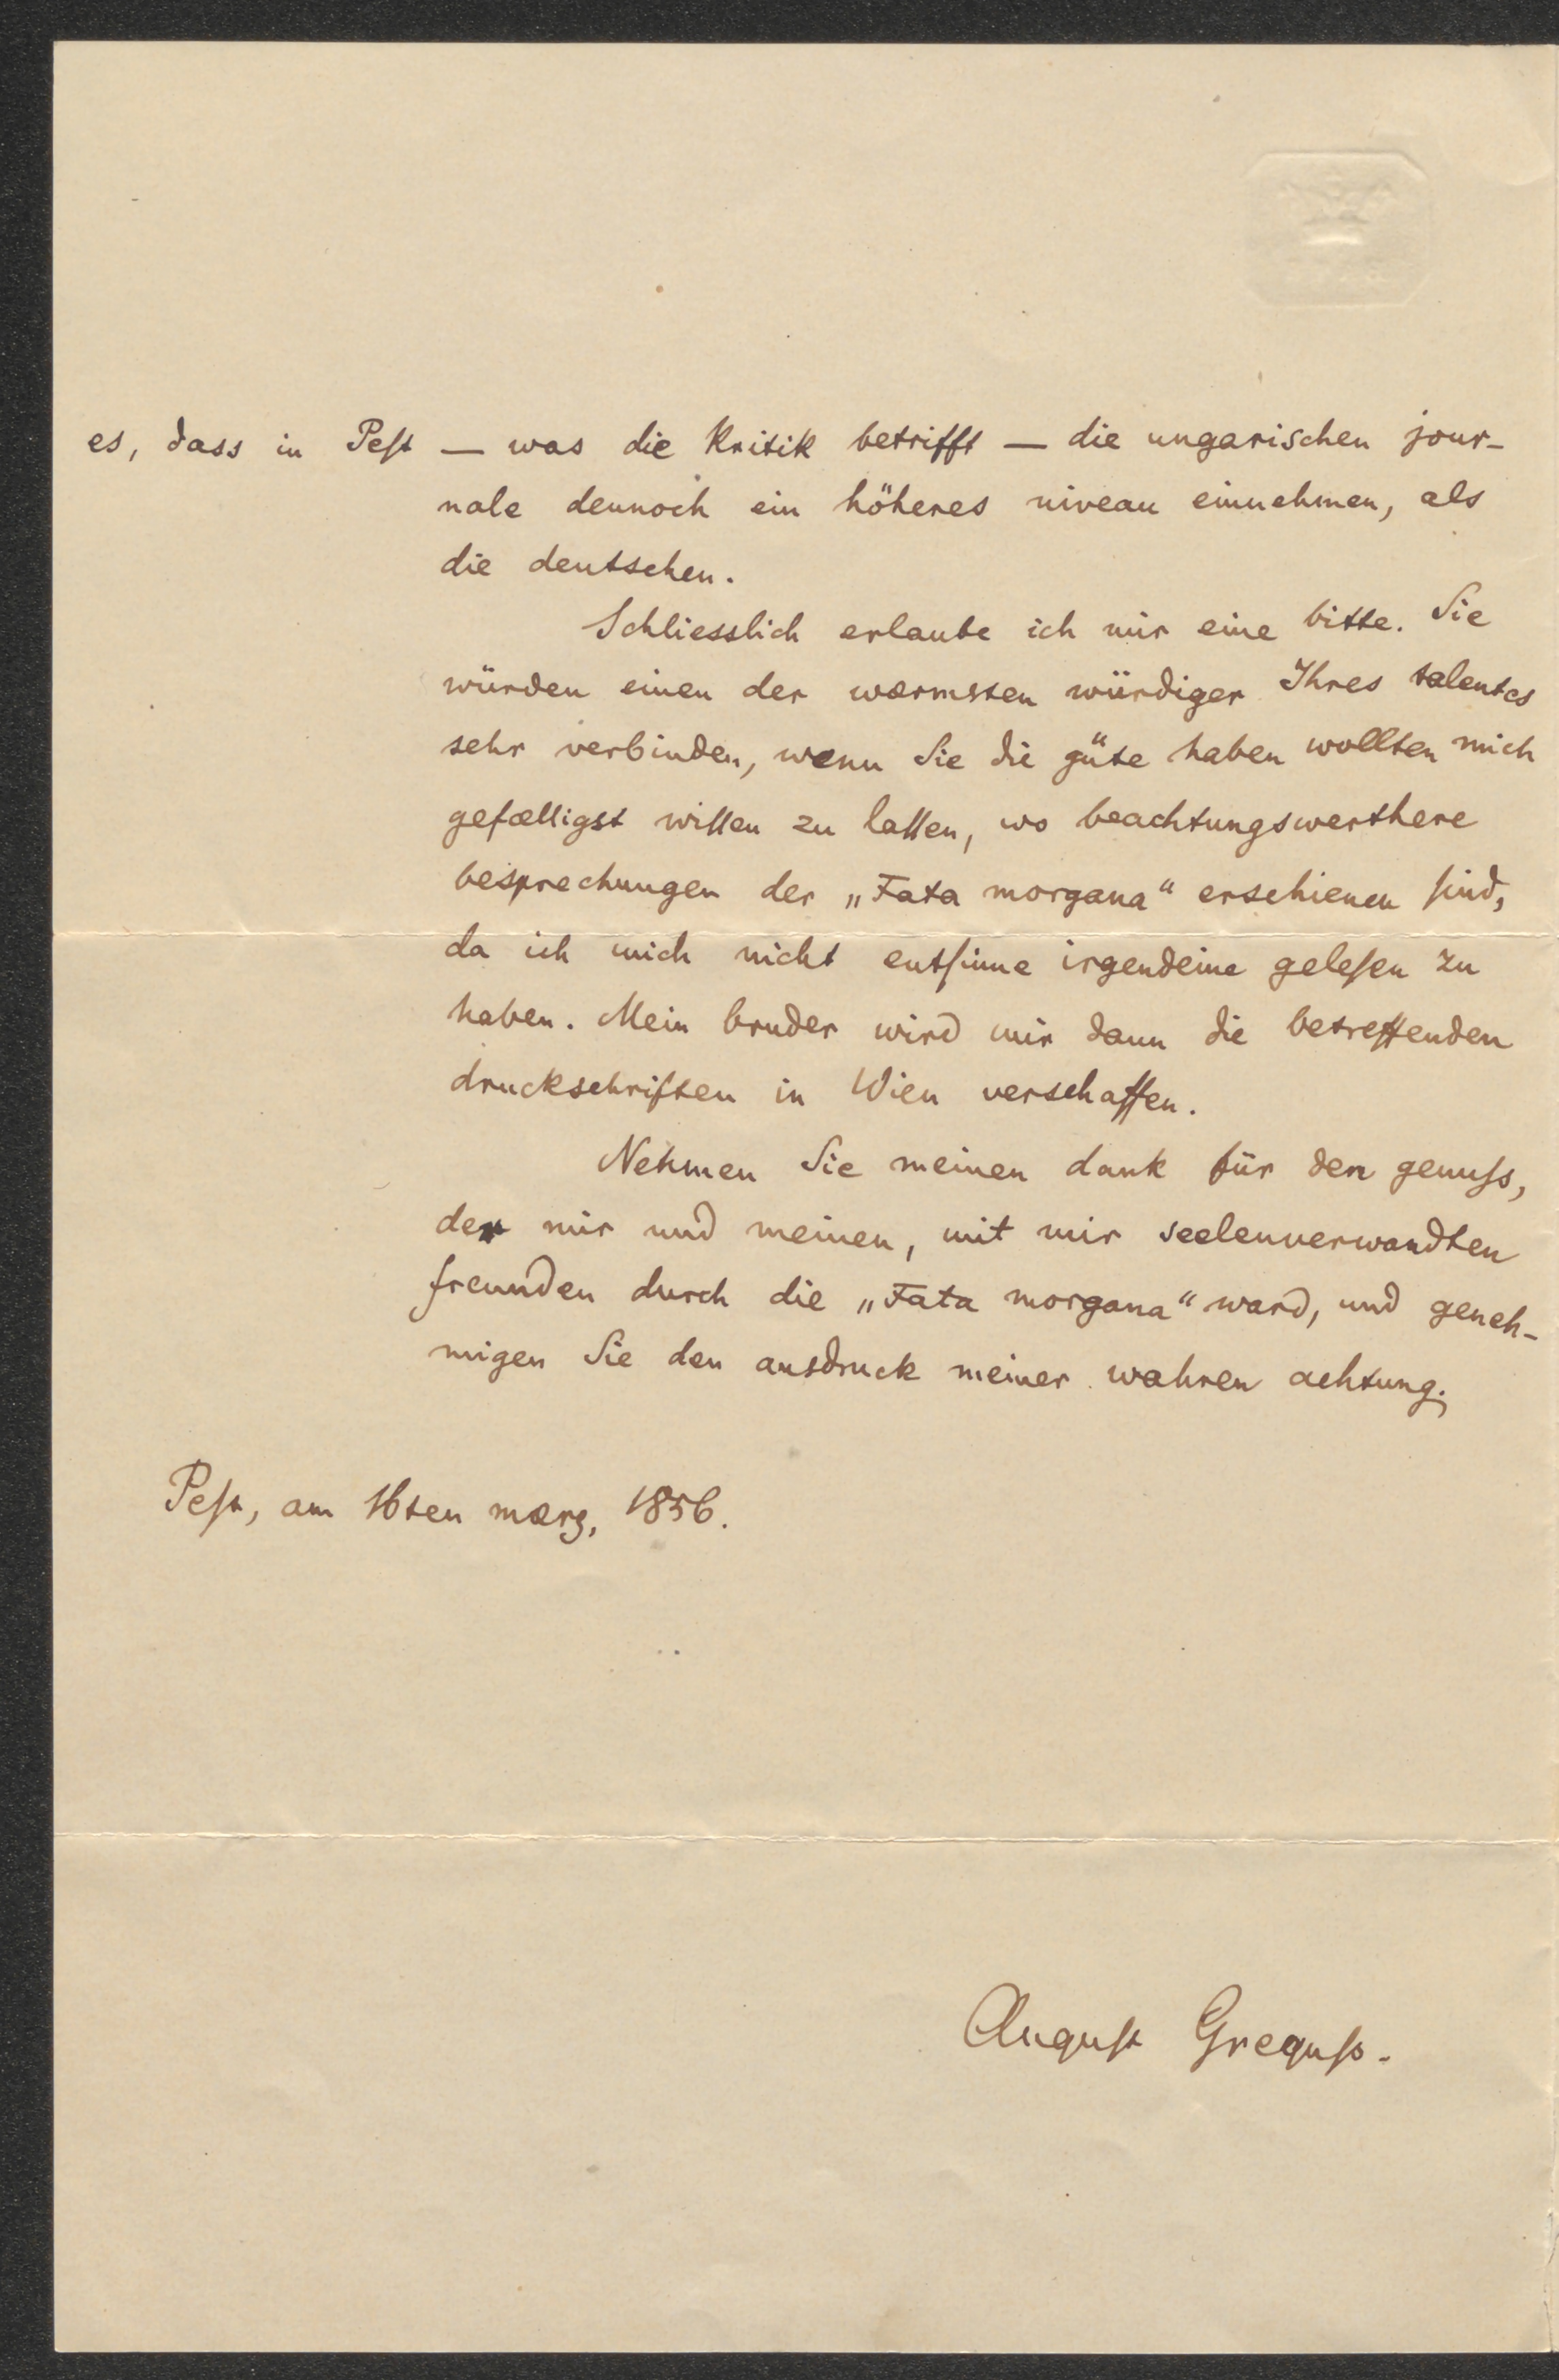 es, dass in Pest — was die kritik betrifft — die ungarischen jour-
nale dennoch ein höheres niveau einnehmen, als
die deutschen.
Schliesslich erlaube ich mir eine bitte. Sie
würden einen der wærmsten würdiger Ihres talentes
sehr verbinden, wenn Sie die güte haben wollten mich
gefælligst wissen zu lassen, wo beachtungswerthere
besprechungen der „Fata morgana“ erschienen sind,
da ich mich nicht entsinne irgendeine gelesen zu
haben. Mein bruder wird mir dann die betreffenden
druckschriften in Wien verschaffen.
Nehmen Sie meinen dank für den genuss,
der mir und meinen, mit mir seelenverwandten
freunden durch die „Fata morgana“ ward, und geneh-
migen Sie den ausdruck meiner wahren achtung.
Pest, am 16ten mærz, 1856.
August Greguss.